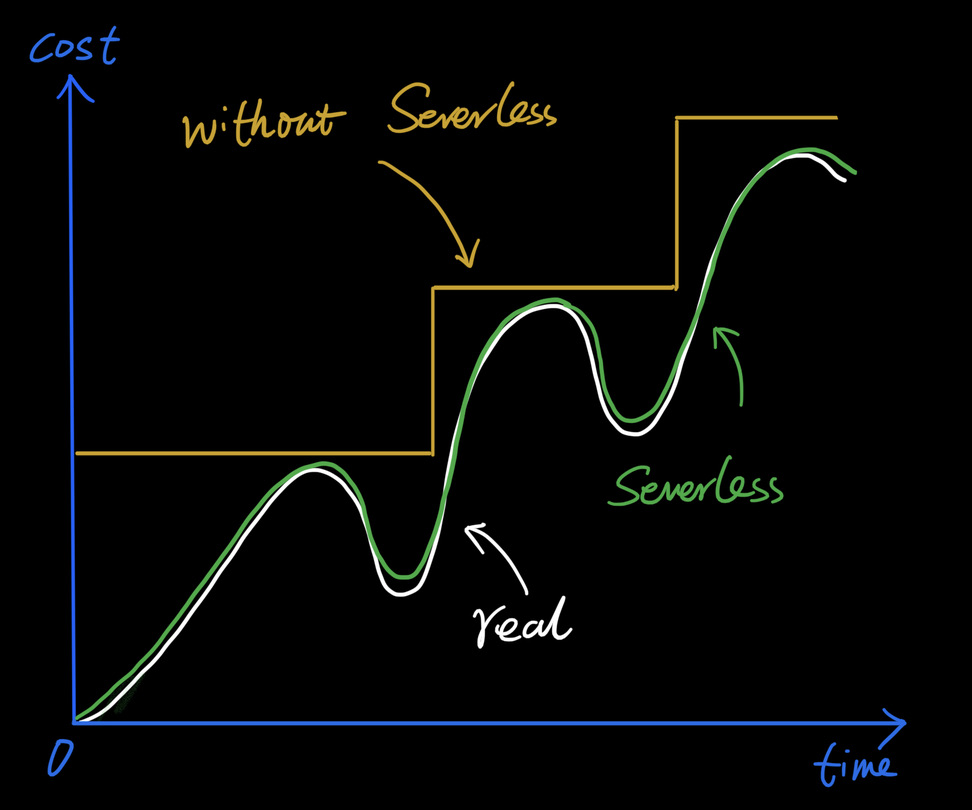 cost
without Severless
Severless
real
0
time